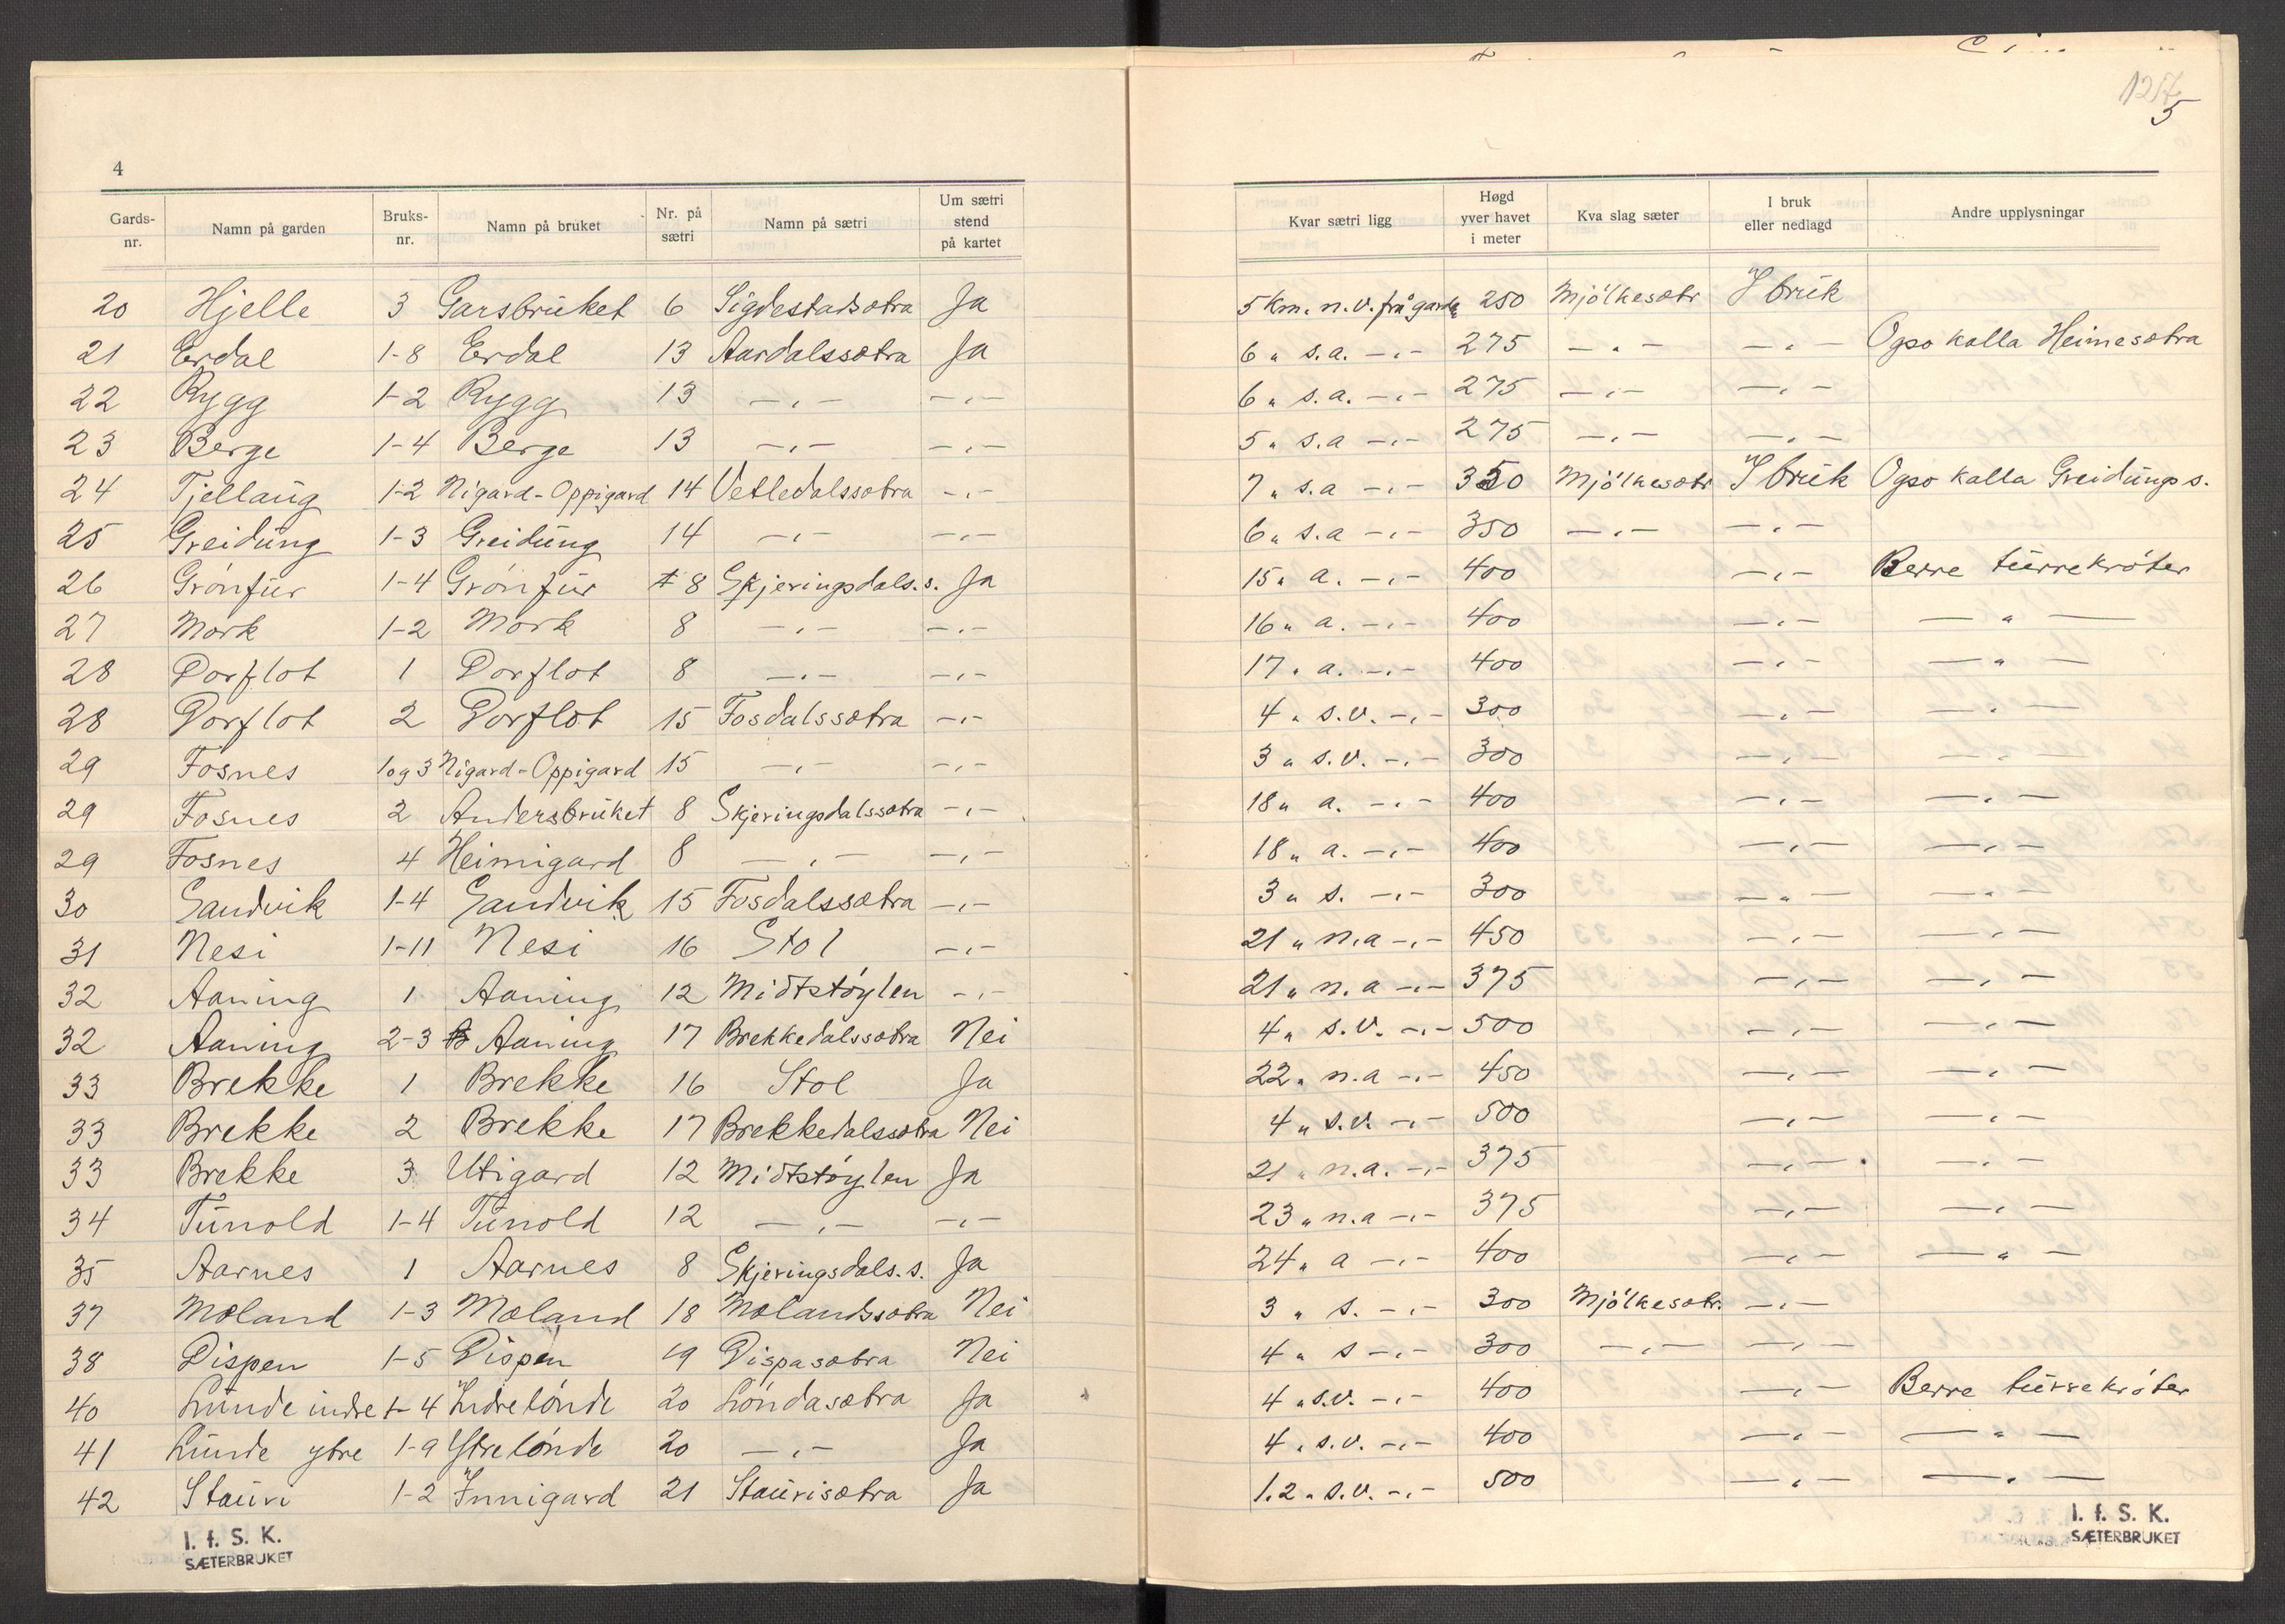 4
Gards-nr. Namn på garden Bruks-nr. Namn på bruket Nr. på sætri Namn på sætri Um sætri stend på kartet
20 Hjelle 3 Garsbruket 6 Sigdestadsætra Ja
21 Erdal 1-8 Erdal 13 Aardalssætra Ja
22 Rygg 1-2 Rygg 13 —„— —„—
23 Berge 1-4 Berge 13 —„— —„—
24 Tjellaug 1-2 Nigard-Oppigard 14 Vetledalssætra —„—
25 Greidung 1-3 Greidung 14 —„— —„—
26 Grónfur 1-4 Grónfur 8 Skjeringsdals.s. Ja
27 Mork 1-2 Mork 8 —„— —„—
28 Dorflot 1 Dorflot 8 —„— —„—
28 Dorflot 2 Dorflot 15 Fosdalssætra —„—
29 Fosnes 1 og 3 Nigard-Oppigard 15 —„— —„—
29 Fosnes 2 Andersbruket 8 Skjeringsdalssætra —„—
29 Fosnes 4 Heimigard 8 —„— —„—
30 Sandvik 1-4 Sandvik 15 Fosdalssætra —„—
31 Nesi 1-11 Nesi 16 Stol —„—
32 Aaning 1 Aaning 12 Midtstóylen —„—
32 Aaning 2-3 Aaning 17 Brekkedalssætra Nei
33 Brekke 1 Brekke 16 Stol Ja
33 Brekke 2 Brekke 17 Brekkedalssætra Nei
33 Brekke 3 Utigard 12 Midtstóylen Ja
34 Tunold 1-4 Tunold 12 —„— —„—
35 Aarnes 1 Aarnes 8 Skjeringsdals.s. Ja
37 Mæland 1-3 Mæland 18 Mælandssætra Nei
38 Dispen 1-5 Dispen 19 Dispasætra Nei
40 Lunde indre 1-4 Indrelónde 20 Lóndasætra Ja
41 Lunde ytre 1-9 Ytrelónde 20 —„— Ja
42 Stauri 1-2 Innigard 21 Staurisætra Ja
I. f. S. K.
SÆTERBRUKET
1257
5
Kvar sætri ligg Høgd yver havet i meter Kva slag sæter I bruk eller nedlagd Andre upplysningar
5 km. n.v. frå garden 250 Mjólkesætr I bruk
6 „ s.a. —„— 275 —„— —„— Ogso kalla Heimesætra
6 „ s.a. —„— 275 —„— —„—
5 „ s.a —„— 275 —„— —„—
7 „ s.a —„— 350 Mjólkesætr I bruk Ogso kalla Greidungs.
6 „ s.a —„— 350 —„— —„—
15 „ a. —„— 400 —„— Berre turrekróter
16 „ a. —„— 400 —„— —„—
17 „ a. —„— 400 —„— —„—
4 „ s.v. —„— 300 —„— —„—
3 „ s.v. —„— 300 —„— —„—
18 „ a. —„— 400 —„— —„—
18 „ a. —„— 400 —„— —„—
3 „ s. —„— 300 —„— —„—
21 „ n.a —„— 450 —„— —„—
21 „ n.a —„— 375 —„— —„—
4 „ s.v. —„— 500 —„— —„—
22 „ n.a —„— 450 —„— —„—
4 „ s.v. —„— 500 —„— —„—
21 „ n.a. —„— 375 —„— —„—
23 „ n.a —„— 375 —„— —„—
24 „ a —„— 400 —„— —„—
3 „ s. —„— 300 Mjólkesætr. —„—
4 „ s —„— 300 —„— —„—
4 „ s.v. —„— 400 —„— Berre turrekróter
4 „ s.v. —„— 400 —„— —„—
1.2 „ s.v. —„— 500 —„— —„—
I. f. S. K.
SÆTERBRUKET